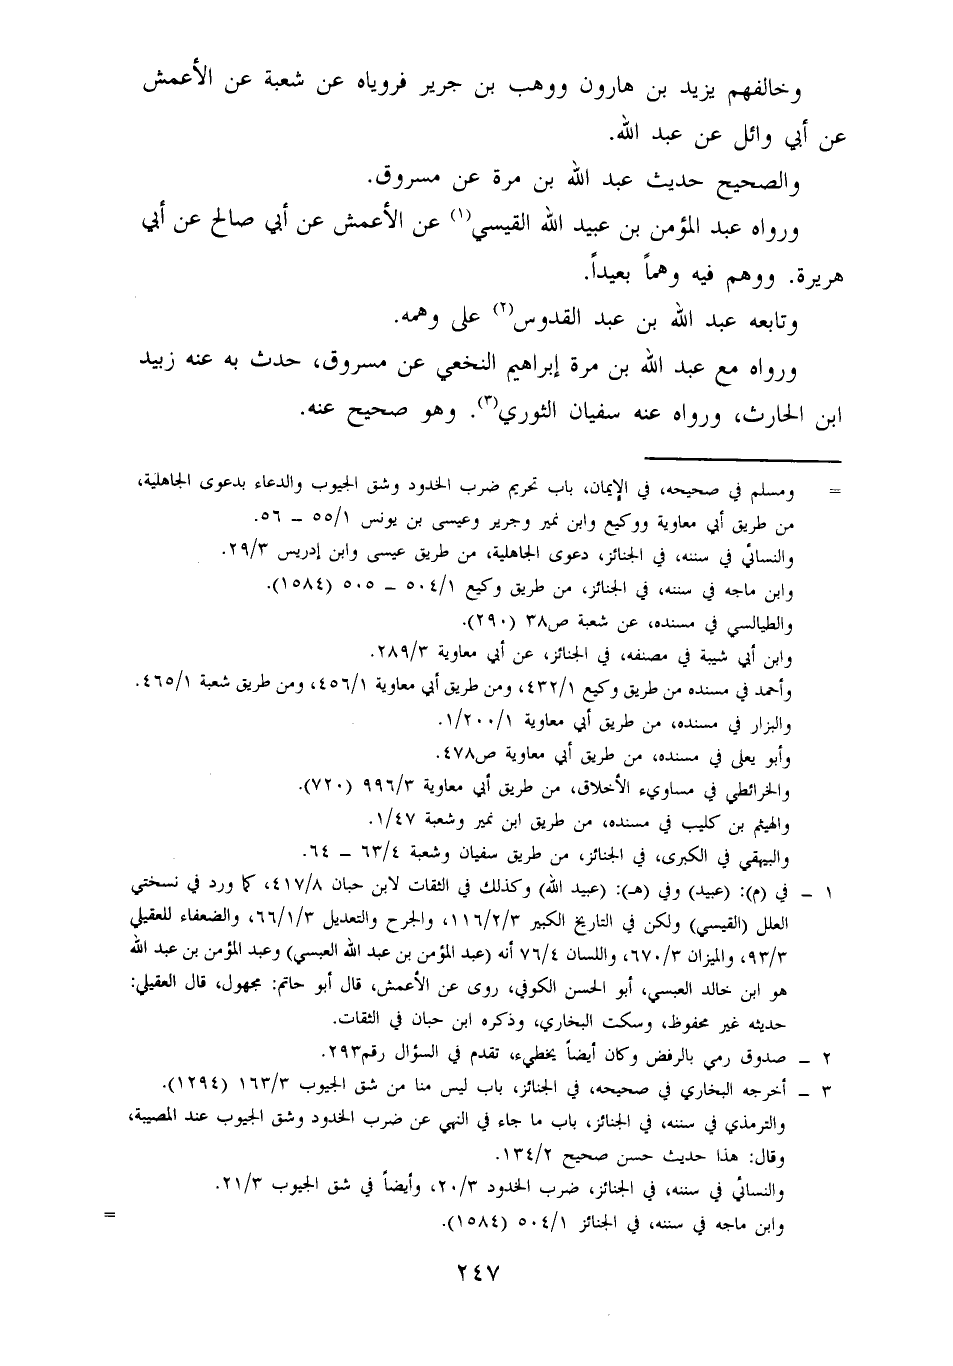 وخالفهم يزيد بن هارون ووهب بن جرير فروياه عن شعبة عن الأعمش
عن أبي وائل عن عبد الله.
والصحيح حديث عبد الله بن مرة عن مسروق.
ورواه عبد المؤمن بن عبيد الله القيسي(١) عن الأعمش عن أبي صالح عن أبي
هريرة. ووهم فيه وهماً بعيداً.
وتابعه عبد الله بن عبد القدوس(٢) على وهمه.
ورواه مع عبد الله بن مرة إبراهيم النخعي عن مسروق، حدث به عنه زبيد
ابن الحارث، ورواه عنه سفيان الثوري(٣). وهو صحيح عنه.
= ومسلم في صحيحه، في الإيمان، باب تحريم ضرب الخدود وشق الجيوب والدعاء بدعوى الجاهلية،
من طريق أبي معاوية ووكيع وابن نمير وجرير وعيسى بن يونس ١/٥٥ - ٥٦.
والنسائي في سننه، في الجنائز، دعوى الجاهلية، من طريق عيسى وابن إدريس ٢٩/٣.
وابن ماجه في سننه، في الجنائز، من طريق وكيع ٥٠٤/١ - ٥٠٥ (١٥٨٤).
والطيالسي في مسنده، عن شعبة ص٣٨ (٢٩٠).
وابن أبي شيبة في مصنفه، في الجنائز، عن أبي معاوية ٢٨٩/٣.
وأحمد في مسنده من طريق وكيع ٤٣٢/١، ومن طريق أبي معاوية ٤٥٦/١، ومن طريق شعبة ٤٦٥/١.
والبزار في مسنده، من طريق أبي معاوية ١/٢٠٠/١.
وأبو يعلى في مسنده، من طريق أبي معاوية ص٤٧٨.
والخرائطي في مساويء الأخلاق، من طريق أبي معاوية ٩٩٦/٣ (٧٢٠).
والهيثم بن كليب في مسنده، من طريق ابن نمير وشعبة ١/٤٧.
والبيهقي في الكبرى، في الجنائز، من طريق سفيان وشعبة ٦٣/٤ - ٦٤.
١ - في (م): (عبيد) وفي (هـ): (عبيد الله) وكذلك في الثقات لابن حبان ٤١٧/٨، كما ورد في نسختي
العلل (القيسي) ولكن في التاريخ الكبير ١١٦/٢/٣، والجرح والتعديل ٦٦/١/٣، والضعفاء للعقيلي
٩٣/٣، والميزان ٦٧٠/٣، واللسان ٧٦/٤ أنه (عبد المؤمن بن عبد الله العبسي) وعبد المؤمن بن عبد الله
هو ابن خالد العبسي، أبو الحسن الكوفي، روى عن الأعمش، قال أبو حاتم: مجهول، قال العقيلي:
حديثه غير محفوظ، وسكت البخاري، وذكره ابن حبان في الثقات.
٢ - صدوق رمي بالرفض وكان أيضاً يخطيء، تقدم في السؤال رقم٢٩٣.
٣ - أخرجه البخاري في صحيحه، في الجنائز، باب ليس منا من شق الجيوب ١٦٣/٣ (١٢٩٤).
والترمذي في سننه، في الجنائز، باب ما جاء في النهي عن ضرب الخدود وشق الجيوب عند المصيبة،
وقال: هذا حديث حسن صحيح ١٣٤/٢.
والنسائي في سننه، في الجنائز، ضرب الخدود ٢٠/٣، وأيضاً في شق الجيوب ٢١/٣.
وابن ماجه في سننه، في الجنائز ٥٠٤/١ (١٥٨٤). =
٢٤٧